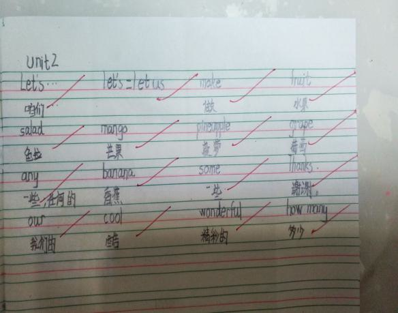 Unit 2
Let's ... let's = let us make fruit
咱们 做 水果
salad mango pineapple grape
色拉 芒果 菠萝 葡萄
any banana some Thanks.
一些,任何的 香蕉 一些 谢谢。
our cool wonderful how many
我们的 酷 精彩的 多少